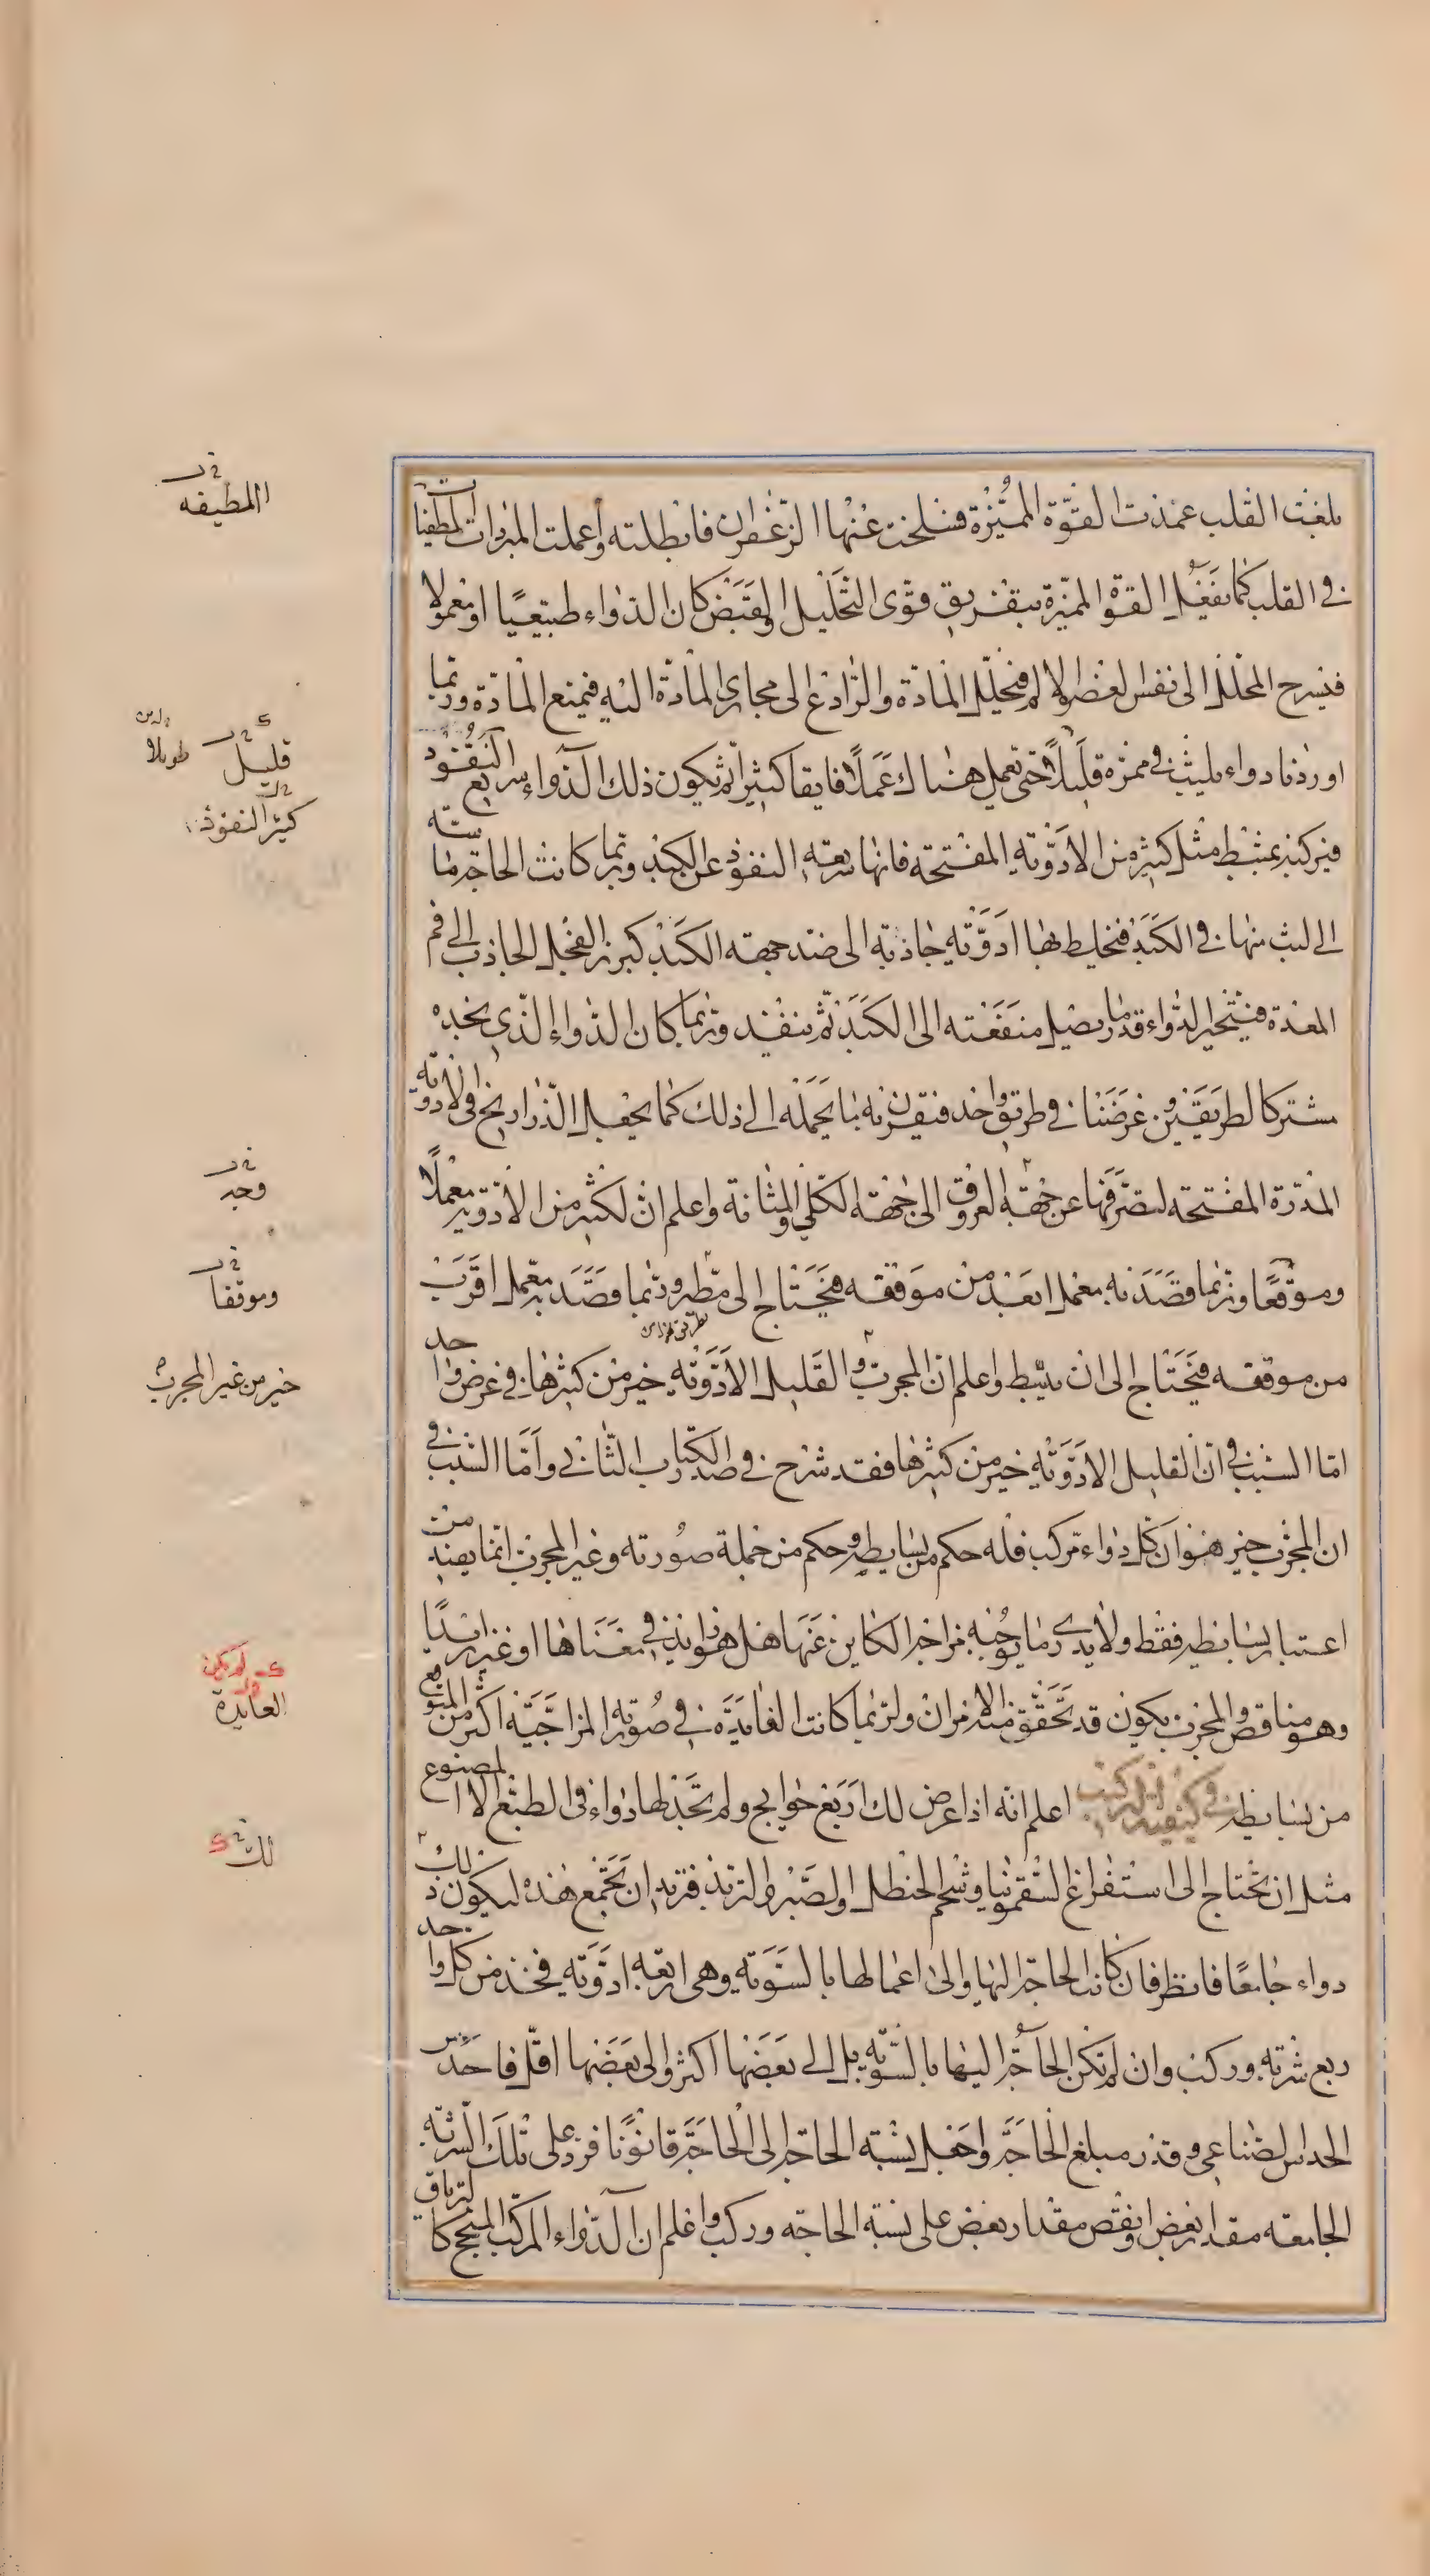 بلغت القلب عمدت القوة المميزة فسلخت عنها الزعفران فابطلته وأعملت المبردات المطفيات
في القلب كما تفعل القوة المميزة بتفريق قوى التحليل والقبض كان الدواء طبيعيا او معمولا
فيسرح المحلل الى نفس العضو الالم فيحلل المادة والرادع الى مجارى المادة اليه فيمنع المادة وربما
اوردنا دواء يلبث في ممره قليلا حتى يعمل هناك عملا فايقا كثيرا ثم يكون ذلك الدواء سريع النفوذ
فنركبه بمثبط مثل كثير من الادوية المفتحة فانها سريعة النفوذ عن الكبد وربما كانت الحاجة ماسة
الى لبث منها في الكبد فنخلط بها ادوية جاذبة الى ضد جهة الكبد كبزر الفجل الجاذب الى فم
المعدة فيتحير الدواء قدر ما يصل منفعته الى الكبد ثم ينفذ وربما كان الدواء الذي نجده
مشتركا لطريقين وغرضنا في طريق واحد فنقرن به ما يحمله الى ذلك كما نجعل الذراريح في الادوية
المدرة المفتحة لتصرفها عن جهة العروق الى جهة الكلى والمثانة واعلم ان لكثير من الادوية معملا
وموقعا وربما قصد به معمل ابعد من موقفه فيحتاج الى مطرق وربما قصد به معمل اقرب
من موقفه فيحتاج الى ان يثبط واعلم ان المجرب والقليل الادوية خير من كثيرها في غرض واحد
اما السبب في ان القليل الادوية خير من كثيرها فقد شرح في صدر الكتاب الثاني واما السبب في
ان المجرب خير هو ان كل دواء مركب فله حكم من بسايطه وحكم من جملة صورته وغير المجرب انما يفيد من
اعتبار بسايطه فقط ولا يدرى ما يوجبه مزاجه الكاين عنها هل هو زايد في معناها او غير زايد
وهو مناقص والمجرب يكون قد تحقق منه الامران ولربما كانت الفايدة في صورته المزاجية اكثر من المتوقع
من بسايطه في كيفية التركيب اعلم انه اذا عرض لك اربع حوايج ولم تجد لها دواء في الطبع الا المصنوع
مثل ان تحتاج الى استفراغ السقمونيا وشحم الحنظل والصبر والتربذ فتريد ان تجتمع هذه ليكون ذلك
دواء جامعا فانظر فان كانت الحاجة اليها والى اعمالها بالسوية وهي اربعة ادوية فخذ من كل واحد
ربع شربة وركب وان لم تكن الحاجة اليها بالسوية بل الى بعضها اكثر والى بعضها اقل فاحدس
الحدس الصناعي وقدر مبلغ الحاجة واجعل نسبة الحاجة الى الحاجة قانونا فزد على تلك الشربة
الجامعة مقدار بعض وانقص مقدار بعض على نسبة الحاجة وركب واعلم ان الدواء المركب المنجح كالترياق
المطيفه
قليل
طويلا
كثير النفوذ
وجد
وموقفا
خير من غير المجرب
العايدة
لك